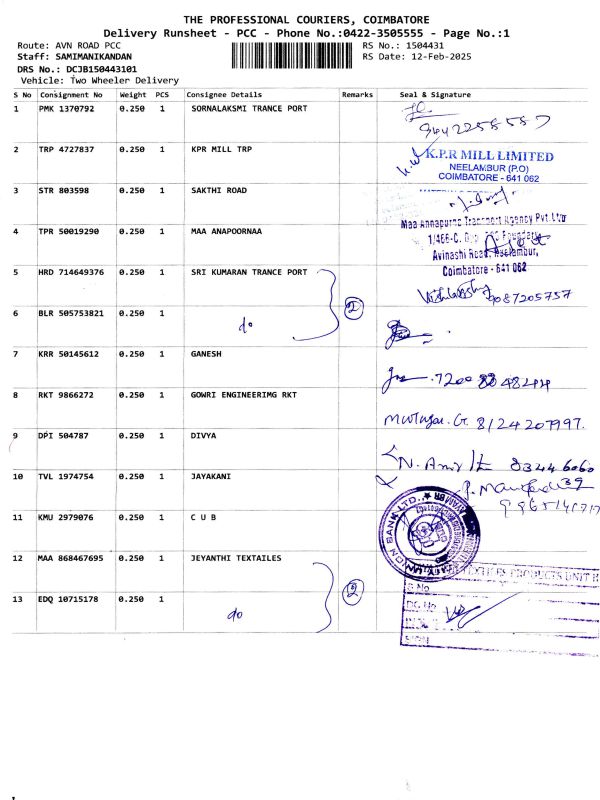 THE PROFESSIONAL COURIERS, COIMBATORE
Delivery Runsheet - PCC - Phone No.:0422-3505555 - Page No.:1
Route: AVN ROAD PCC RS No.: 1504431
Staff: SAMIMANIKANDAN RS Date: 12-Feb-2025
DRS No.: DCJB150443101
Vehicle: Two Wheeler Delivery
S No Consignment No Weight PCS Consignee Details Remarks Seal & Signature
1 PMK 1370792 0.250 1 SORNALAKSMI TRANCE PORT
2 TRP 4727837 0.250 1 KPR MILL TRP
K.P.R MILL LIMITED
NEELAMBUR (P.O)
COIMBATORE - 641 062
3 STR 803598 0.250 1 SAKTHI ROAD
4 TPR 50019290 0.250 1 MAA ANAPOORNAA
Maa Annapurna Transport Agency Pvt.Ltd
1/466-C.
Avinashi Road, Neelambur,
Coimbatore - 641 062
5 HRD 714649376 0.250 1 SRI KUMARAN TRANCE PORT
9087205757
6 BLR 505753821 0.250 1 do 2
7 KRR 50145612 0.250 1 GANESH
8 RKT 9866272 0.250 1 GOWRI ENGINEERIMG RKT
8124207997.
9 DPI 504787 0.250 1 DIVYA
10 TVL 1974754 0.250 1 JAYAKANI
11 KMU 2979076 0.250 1 C U B
UNION BANK LTD.,
12 MAA 868467695 0.250 1 JEYANTHI TEXTAILES
PRODUCTS UNIT II
13 EDQ 10715178 0.250 1 do 2
DC. No
SIGN